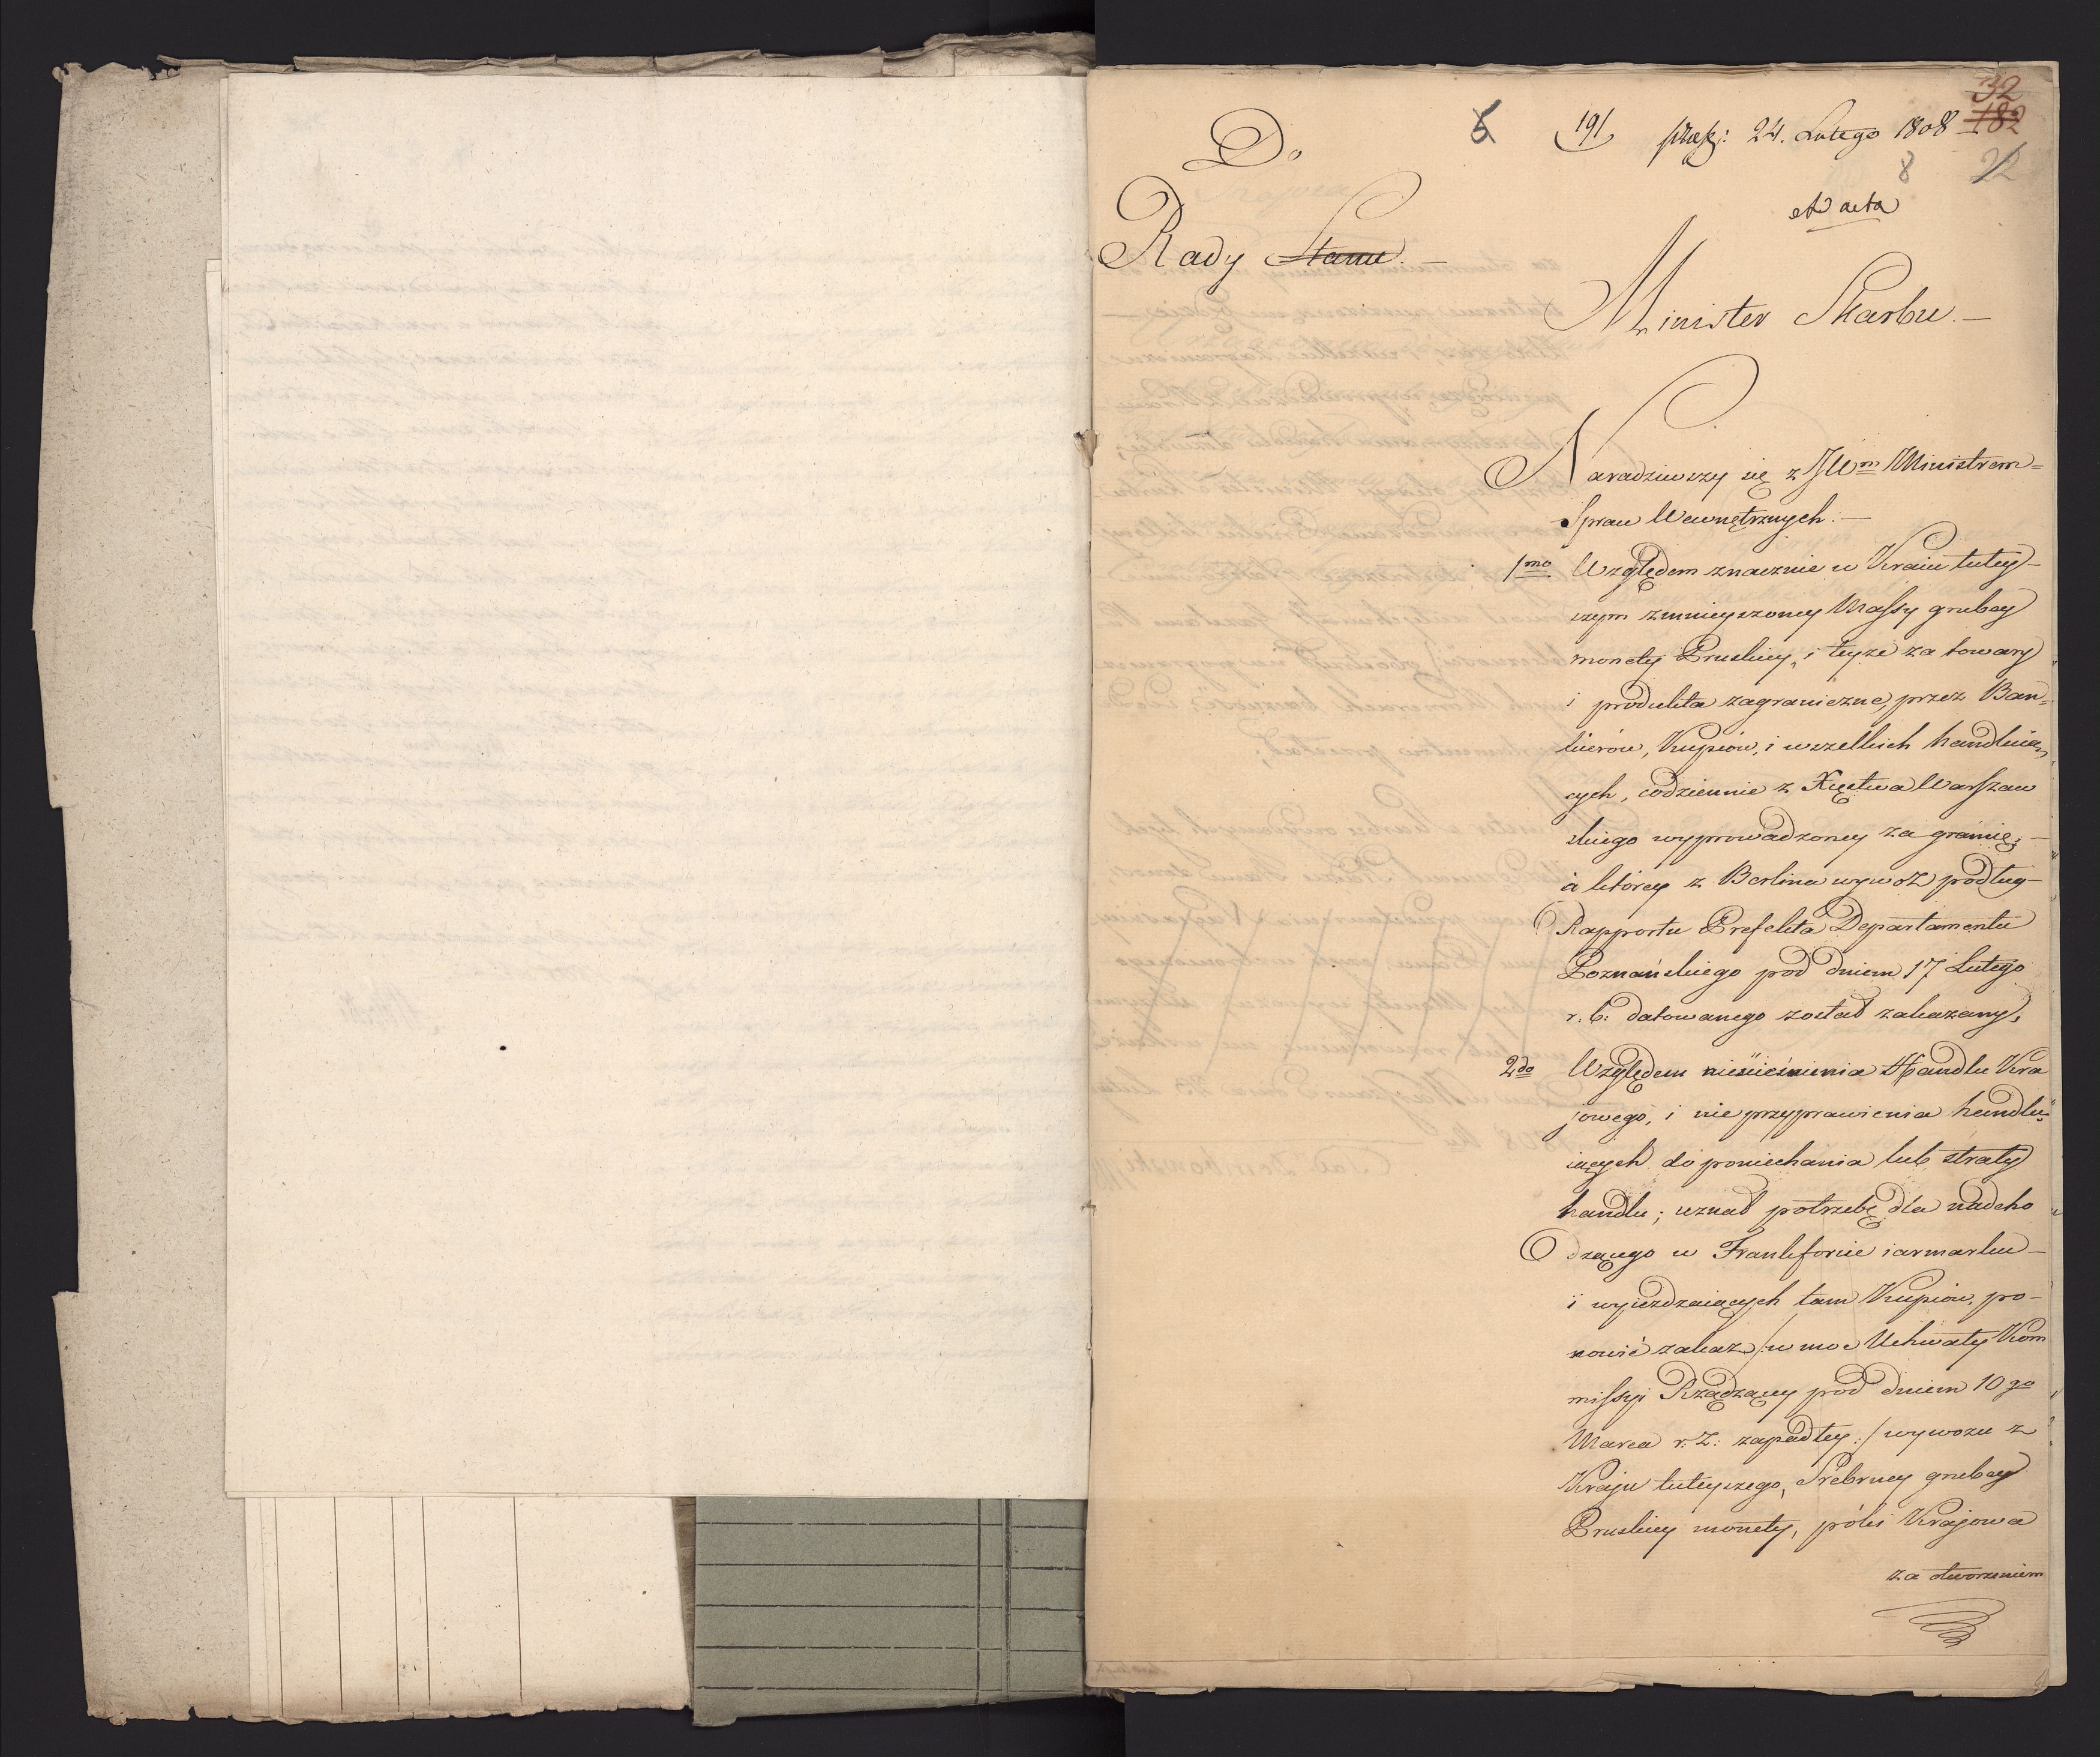 32
182
6 191 prez: 24. Lutego 1808
8 22
Do
Ad acta
Rady Stanu. —
Minister Skarbu. —
Naradziwszy się z JWm Ministrem=
Spraw Wewnętrznych. —
1mo Względem znacznie w Kraiu tutey-
szym zmnieyszoney Massy grubey
monety Pruskiey, i teyże za towary
i produkta zagraniczne, przez Ban=
kierów, Kupców, i wszelkich handluią-
cych, codziennie z Xięstwa Warszaw
skiego wyprowadzoney za granicę; —
a którey z Berlina wywóz podług
Rapportu Prefekta Departamentu
Poznańskiego pod dniem 17 Lutego
r. b: datowanego został zakazany,
2do Względem nieścieśnienia Handlu Kra
jowego, i nie przyprawienia handlu=
iących do poniechania lub straty
handlu; uznał potrzebę dla nadcho
dzącego w Frankforcie iarmarku —
i wyieżdzaiących tam Kupców, po-
nowić zakaz /: w moc Uchwały Kom
missyi Rządzącey pod dniem 10go
Marca r. z: zapadłey :/ wywozu z
Kraju tuteyszego, Srebrney grubey
Pruskiey monety, póki Krajowa
za otworzeniem